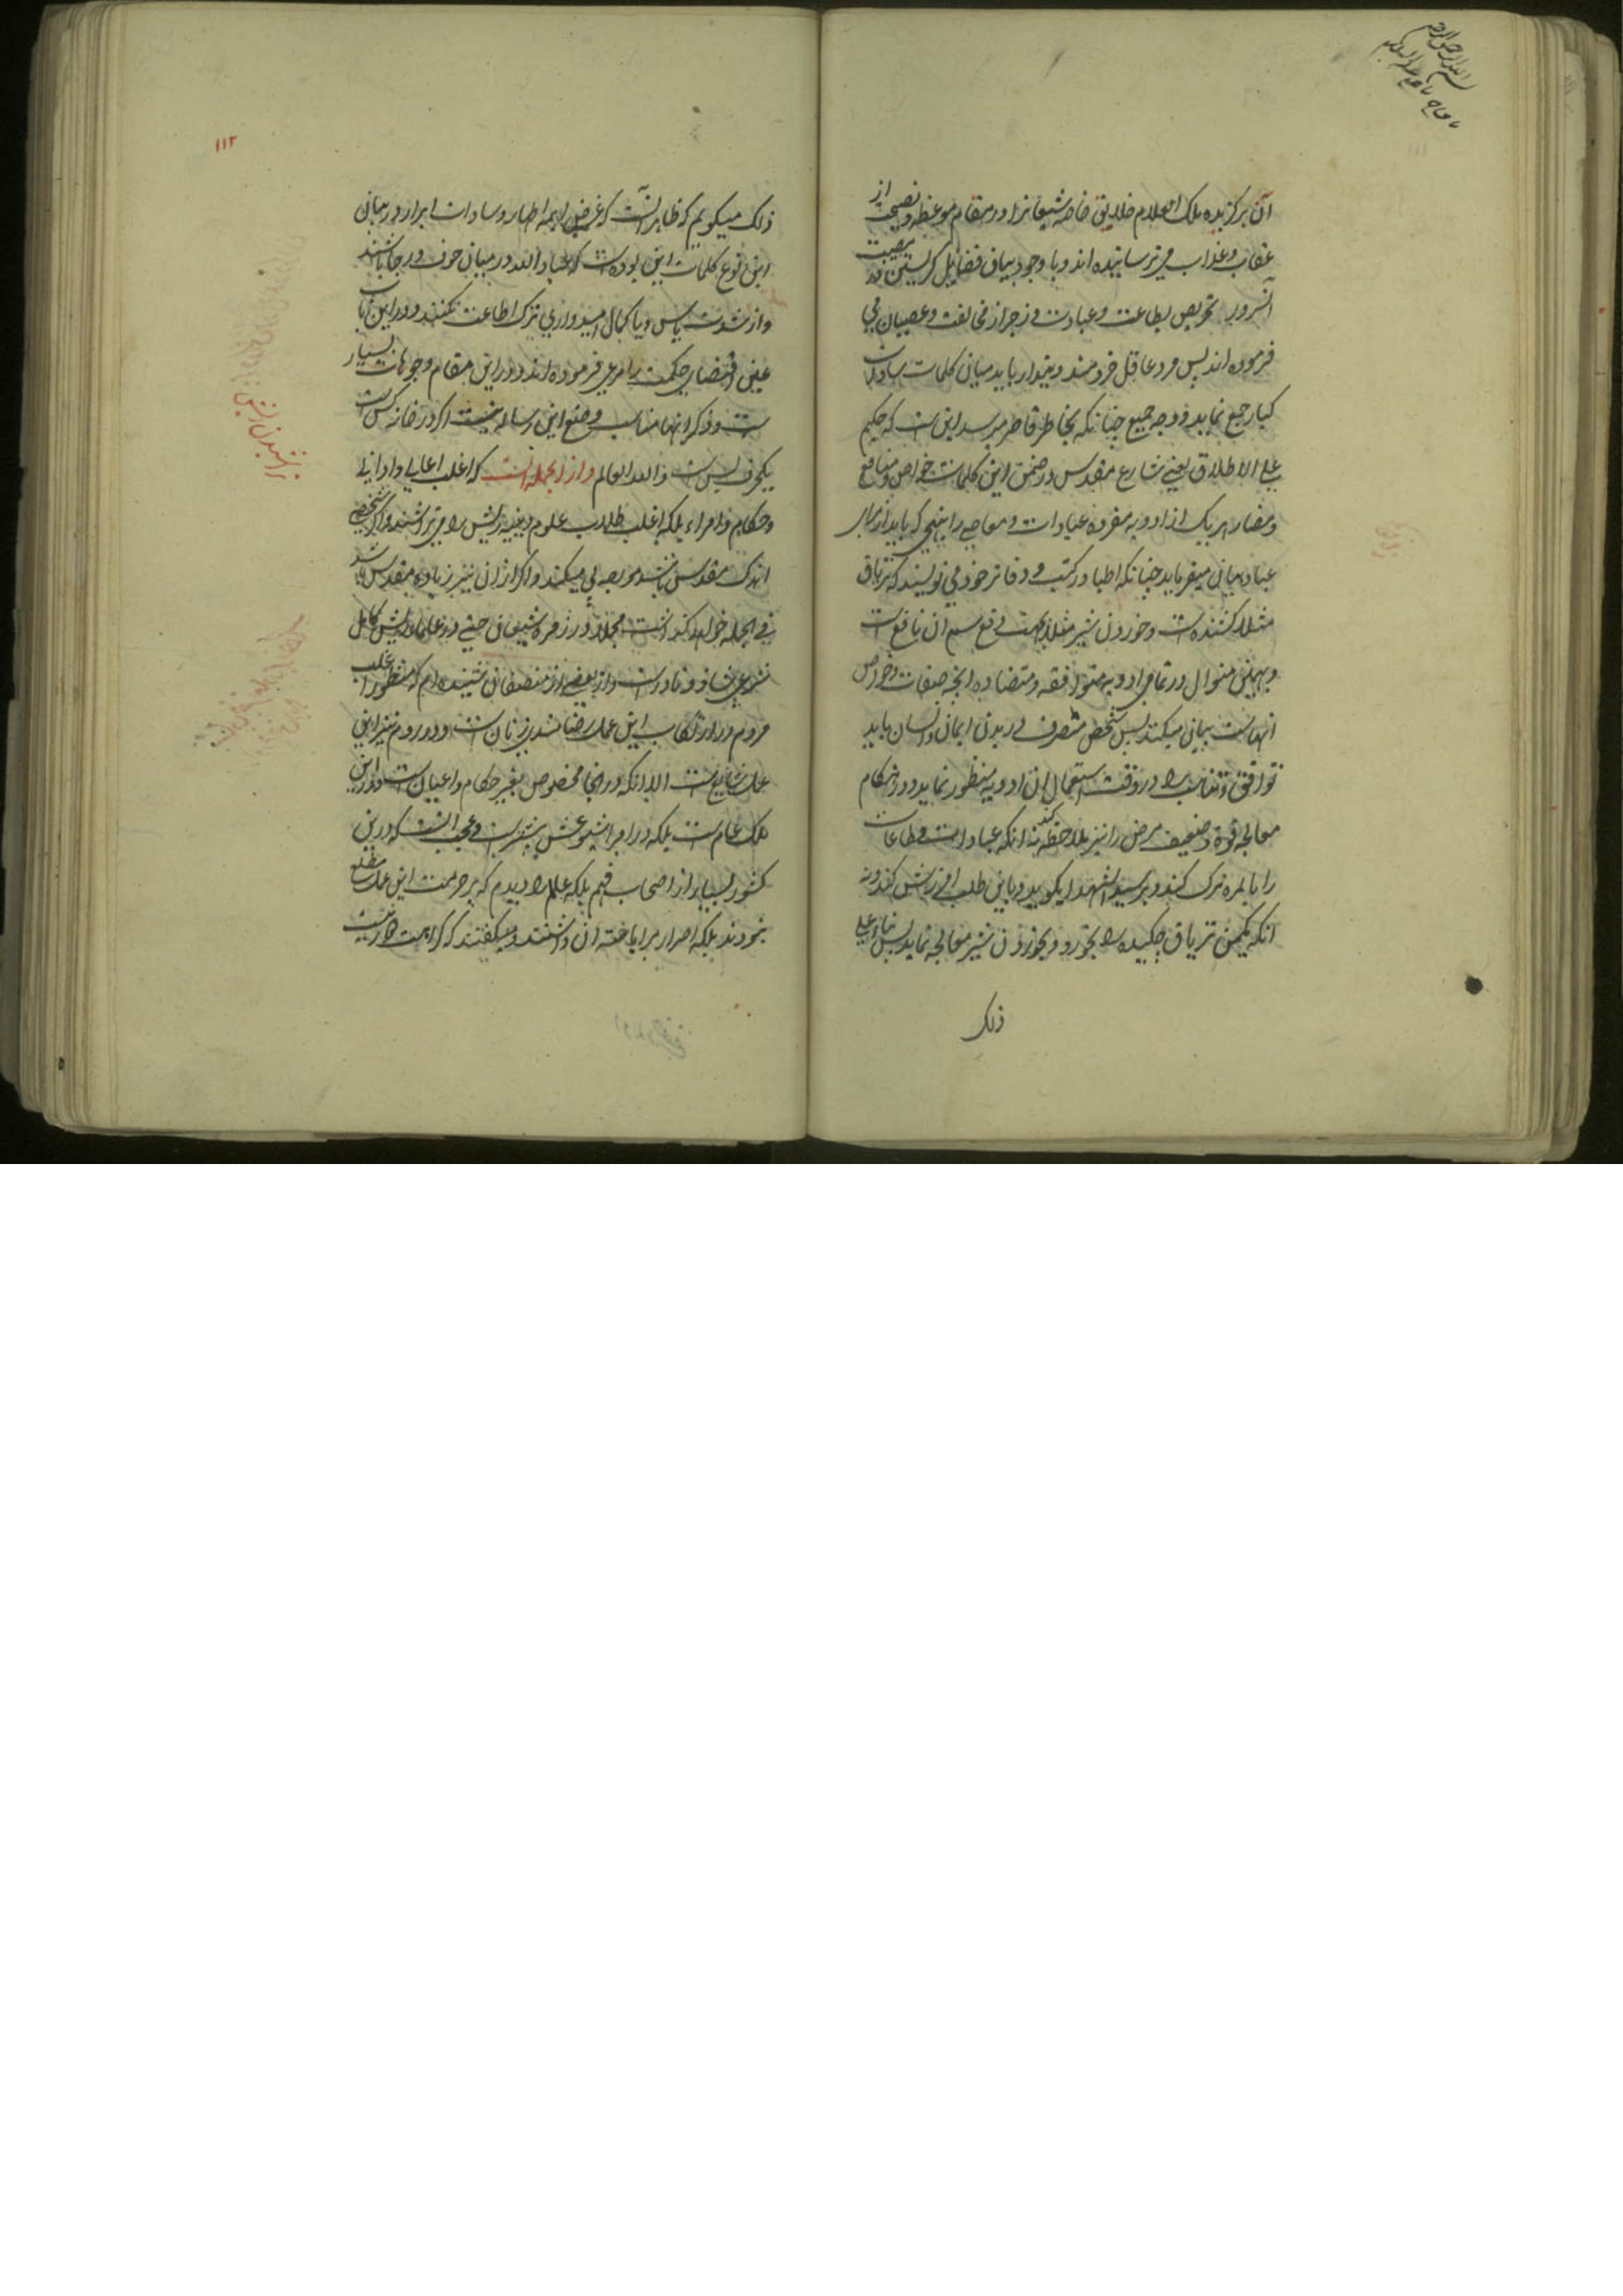 بسم الله الرحمن الرحیم
آن برگزیده ملک العلام خلایق خاصه شیعیانرا در مقام موعظه و نصیحت از
عقاب و عذاب می ترسانیده اند و با وجود بیان فضایل گریستن بر مصیبت
آنسرور تحریص بطاعت و عبادت و زجر از مخالفت و عصیان می
فرموده اند پس مرد عاقل خردمند دیندار باید میان کلمات سادات
کبار جمع نماید و وجه جمع چنانکه بخاطر قاصر میرسد این است که حکیم
علی الاطلاق یعنی شارع مقدس در ضمن این کلمات خواص و منافع
و مضار هر یک از ادویه مفرده عبادات و معاصی را بنهجی که باید از برای
عباد بیان میفرماید چنانکه اطبا در کتب و دفاتر خود می نویسند که تریاق
مثلا کشنده است و خوردن شیر مثلا بجهت دفع سم آن نافع است
و بهمین منوال در تمامی ادویه متوافقه و متضاده آنچه صفات و خواص
انهاست بیان میکند پس شخص متصرف در بدن ایمان و لسان باید
توافق و تناسب را در وقت استعمال آن ادویه منظور نماید و در هنگام
معالجه قوة و ضعف مرض را نیز ملاحظه کند نه انکه عبادات و طاعات
را بالمره ترک کند و بر سید الشهدا بگوید و باین طلب افزایش کند و نه
انکه یکمن تریاق چکیده را بخورد و بخوردن شیر معالجه نماید پس بناء علی
ذلک
۱۱۲
ذلک میگویم که ظاهر انست که غرض ایمه اطهار و سادات ابرار در بیان
این نوع کلمات این بوده است که عباد الله در میان خوف و رجا باشند
و از شدت یاس و یا کمال امیدواری ترک اطاعت نکنند و در این باب
عین اقتضای حکمت را مرعی فرموده اند و در این مقام وجوهات بسیار
است و ذکر انها مناسب وضع این رساله نیست اگر در خانه کس است
یکحرف بس است والله العالم و از انجمله انست که اغلب اعالی و ادانی
و حکام و امراء بلکه اغلب طلاب علوم دینیه ریش را می تراشند و اگر شخصی
اندک مقدس باشد مو بصه لی میکند و اگر از ان نیز زیاده مقدس شد
فی الجمله خواهد گذاشت مجملا در زمره شیعیان حتی در علما ریش کامل
شرعی شاذ و نادر است و از بعضی از منصفان شنیده ام که منظور اغلب
مردم در ارتکاب این عمل رضامندی زنان است و در روم نیز این
عمل شایع است الا انکه در انجا مخصوص بغیر حکام و اعیان است و در این
ملک عام است بلکه در امرا شیوعش بیشتر است و عجب انست که در این
کشور بسیار از اصحاب فهم بلکه علم را دیدم که بر حرمت این عمل مطلع
نبودند بلکه اصرار بر اباحته آن داشتند و میگفتند که کراهت دارد
ریش تراشیدن